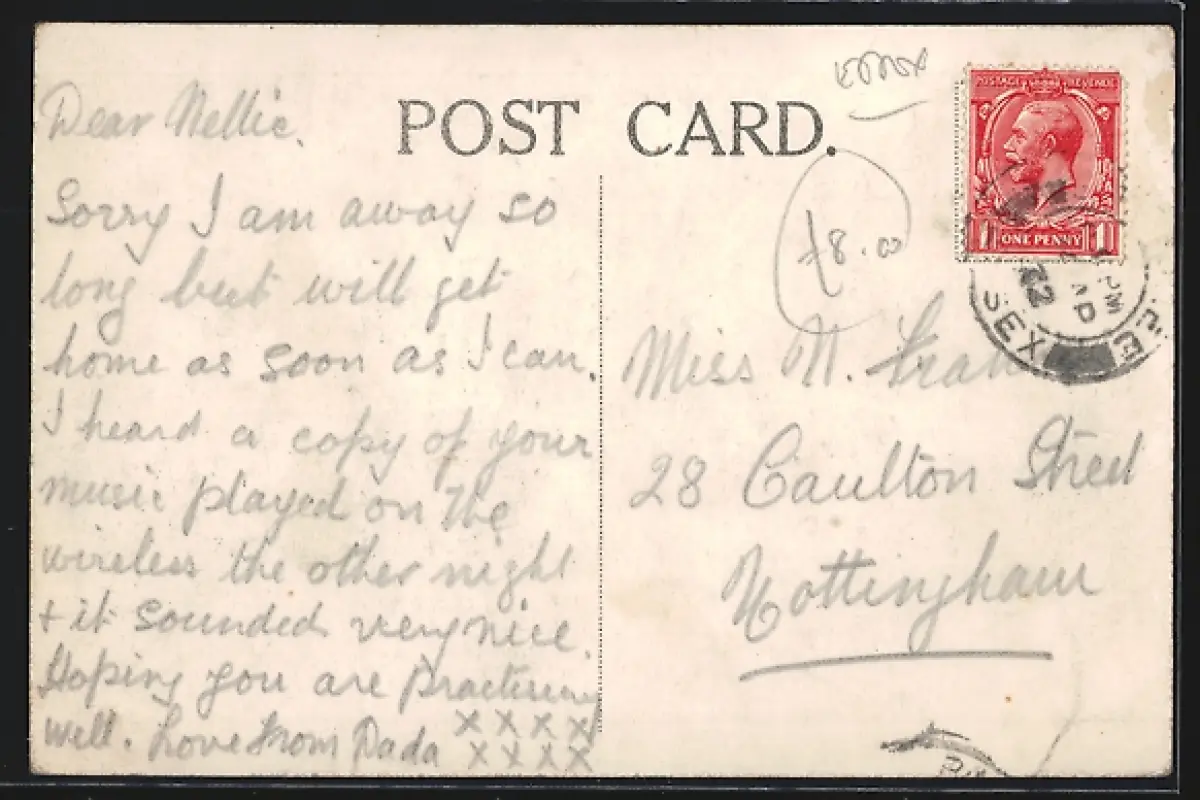 Dear Nellie.
Sorry I am away so
long but will get
home as soon as I can.
I heard a copy of your
music played on the
wireless the other night
+ it sounded very nice.
Hoping you are practising
well. Love from Dada
x x x x
x x x x
POST CARD.
£8.00
POSTAGE REVENUE
1 ONE PENNY 1
PM
AD
22
SEX
Miss N.
28 Caulton Street
Nottingham